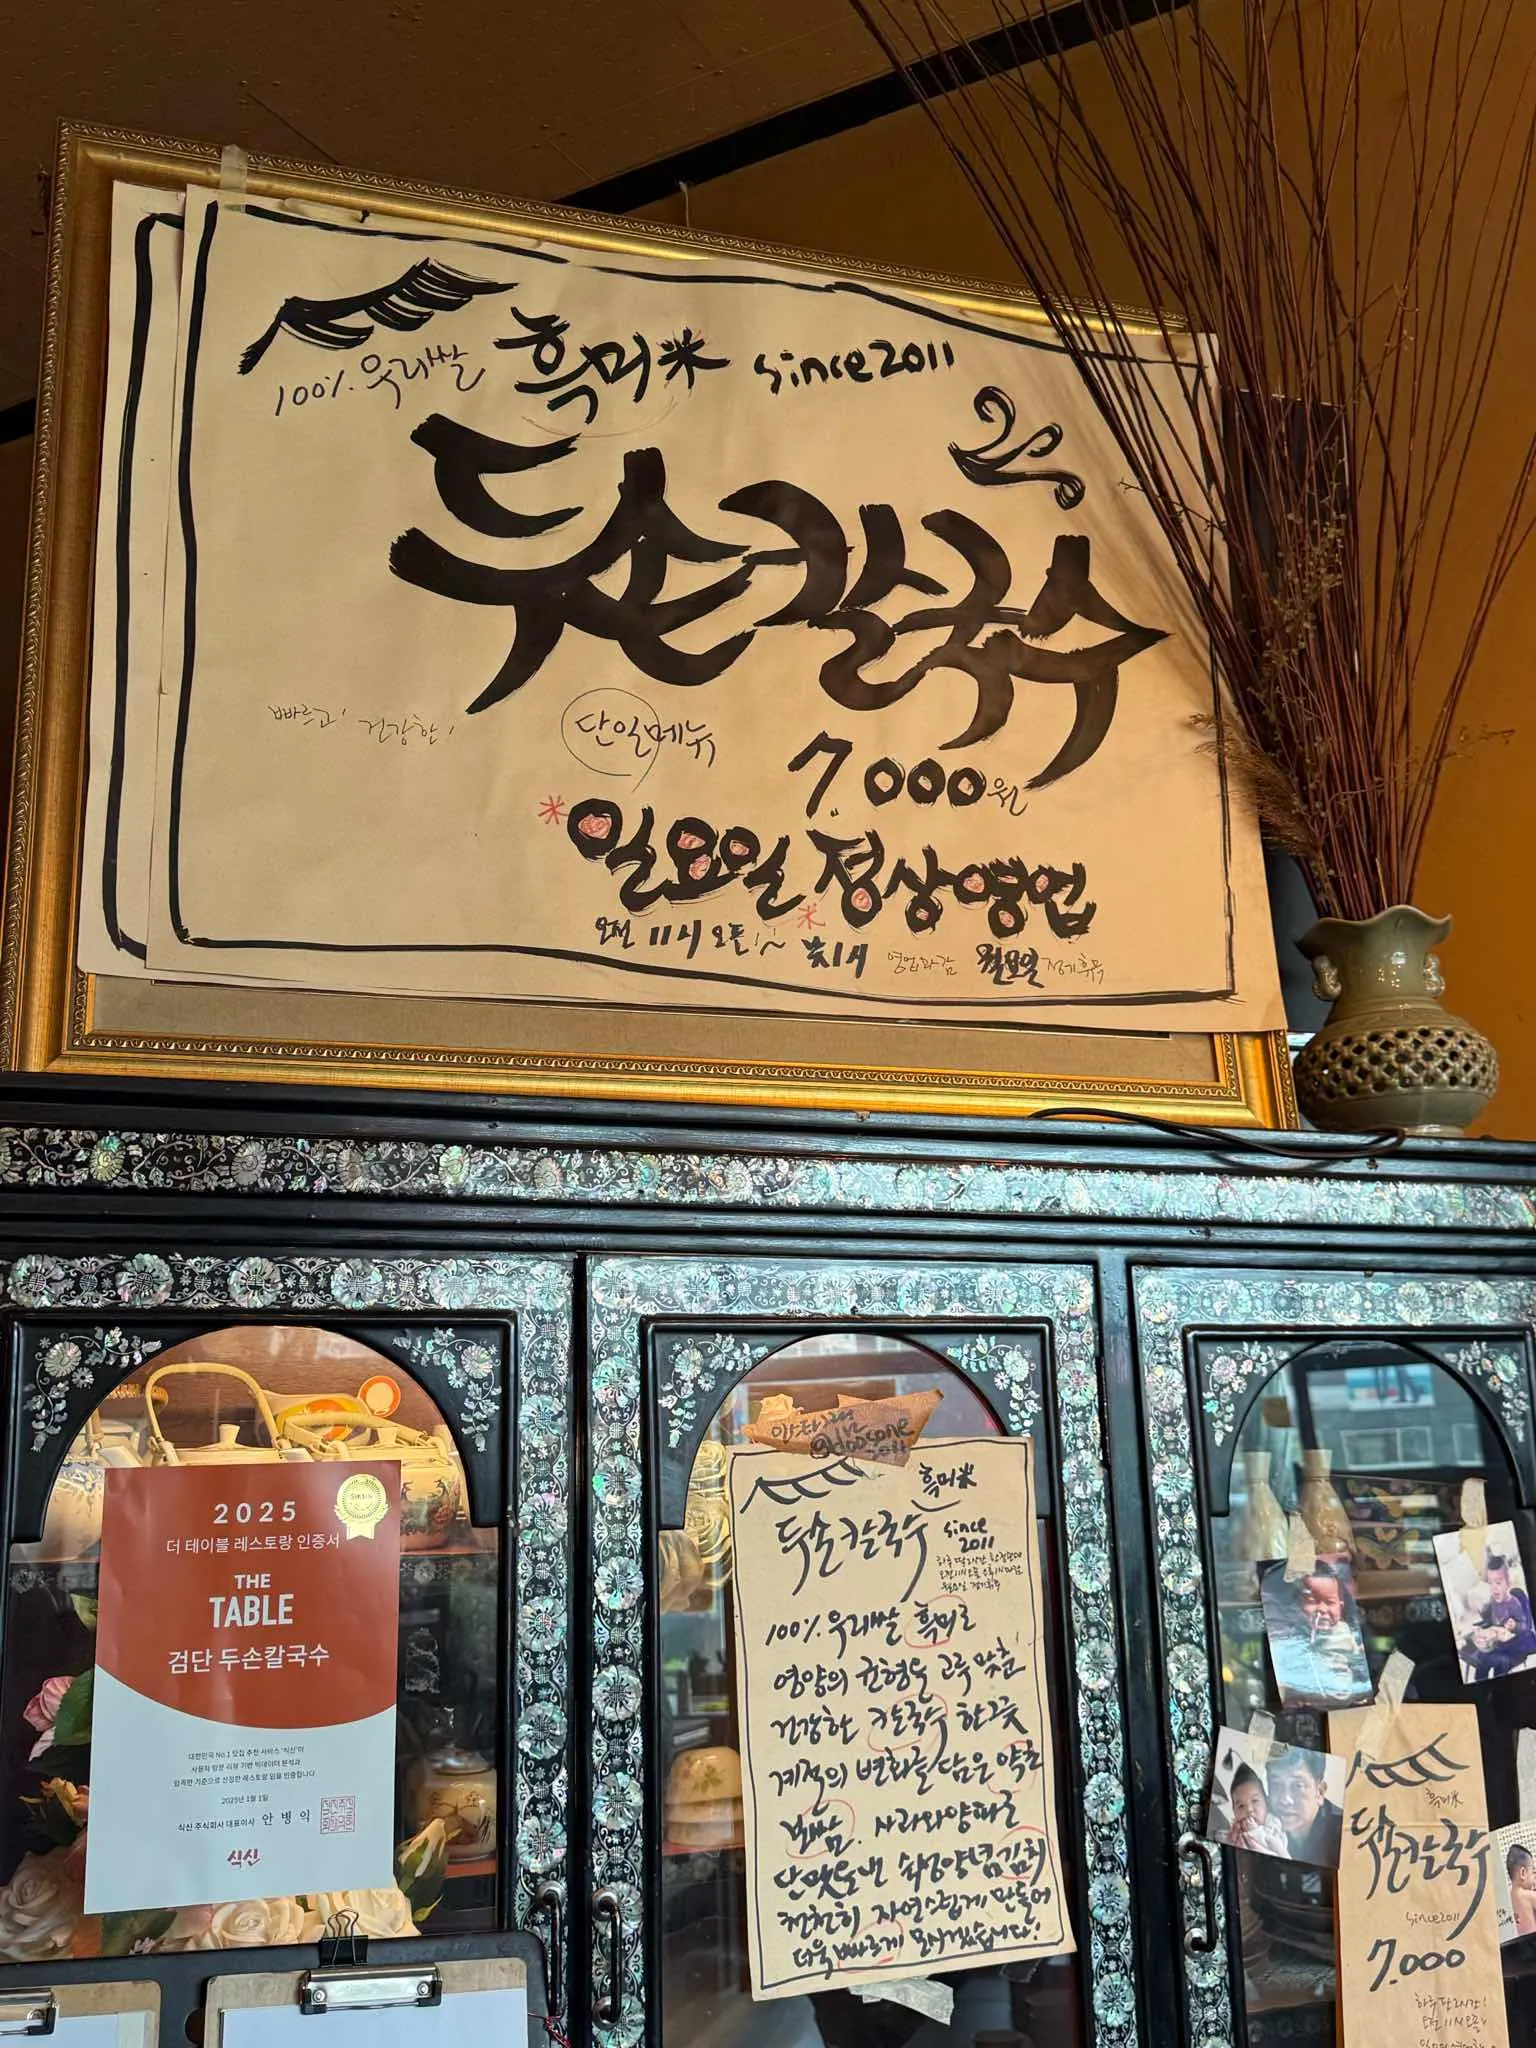 100% 우리쌀 흑미米 since2011
두손칼국수
빠르고! 건강한!
단일메뉴 7.000원
*일요일 정상영업
오전 11시 오픈!~ 낮1시 영업마감 월요일 정기휴무
2025
더 테이블 레스토랑 인증서
THE
TABLE
검단 두손칼국수
대한민국 No.1 맛집 추천 서비스 '식신'이
사용자 방문 리뷰 기반 빅데이터 분석과
엄격한 기준으로 선정한 레스토랑 임을 인증합니다.
2025년 1월 1일
식신 주식회사 대표이사 안 병 익
식신
흑미米
두손칼국수 since
2011
100% 우리쌀 흑미로
영양의 균형을 고루 맞춘
건강한 칼국수 한그릇
계절의 변화를 담은 약초
보쌈. 사과와양파로
단맛을낸 숙성양념김치
천천히 자연스럽게 만들어
더욱 빠르게 모시겠습니다!
흑미米
두손칼국수
since2011
7.000
하루 딱 2시간!
오전 11시 오픈